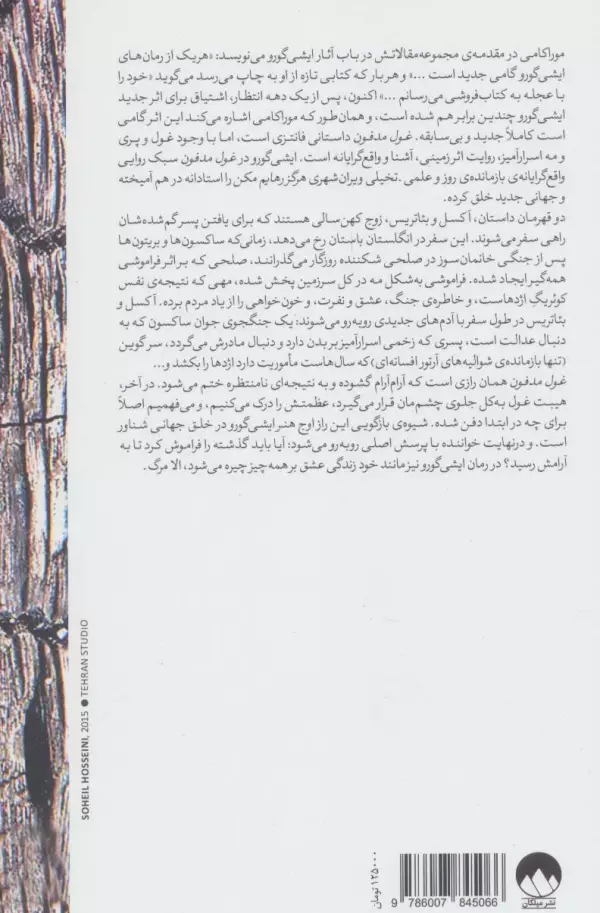 موراکامی در مقدمه‌ی مجموعه‌مقالاتش در باب آثار ایشی‌گورو می‌نویسد: «هریک از رمان‌های
ایشی‌گورو گامی جدید است ...» و هر بار که کتابی تازه از او به چاپ می‌رسد می‌گوید «خود را
با عجله به کتاب‌فروشی می‌رسانم ...» اکنون، پس از یک دهه انتظار، اشتیاق برای اثر جدید
ایشی‌گورو چندین برابر هم شده است، و همان‌طور که موراکامی اشاره می‌کند این اثر گامی
است کاملاً جدید و بی‌سابقه. غول مدفون داستانی فانتزی است، اما با وجود غول و پری
و مه اسرارآمیز، روایت اثر زمینی، آشنا و واقع‌گرایانه است. ایشی‌گورو در غول مدفون سبک روایی
واقع‌گرایانه‌ی بازمانده‌ی روز و علمی ـ تخیلی ویران‌شهری هرگز رهایم مکن را استادانه در هم آمیخته
و جهانی جدید خلق کرده.
دو قهرمان داستان، آکسل و بئاتریس، زوج کهن‌سالی هستند که برای یافتن پسر گم‌شده‌شان
راهی سفر می‌شوند. این سفر در انگلستان باستان رخ می‌دهد، زمانی‌که ساکسون‌ها و بریتون‌ها
پس از جنگی خانمان‌سوز در صلحی شکننده روزگار می‌گذرانند، صلحی که بر اثر فراموشی
همه‌گیر ایجاد شده. فراموشی به‌شکل مه در کل سرزمین پخش شده، مهی که نتیجه‌ی نفس
کوئریگِ اژدهاست، و خاطره‌ی جنگ، عشق و نفرت، و خون‌خواهی را از یاد مردم برده. آکسل و
بئاتریس در طول سفر با آدم‌های جدیدی روبه‌رو می‌شوند: یک جنگجوی جوان ساکسون که به
دنبال عدالت است، پسری که زخمی اسرارآمیز بر بدن دارد و دنبال مادرش می‌گردد، سر گوین
(تنها بازمانده‌ی شوالیه‌های آرتور افسانه‌ای) که سال‌هاست مأموریت دارد اژدها را بکشد و...
غول مدفون همان رازی است که آرام‌آرام گشوده و به نتیجه‌ای نامنتظره ختم می‌شود. در آخر،
هیبت غول به‌کل جلوی چشم‌مان قرار می‌گیرد، عظمتش را درک می‌کنیم، و می‌فهمیم اصلاً
برای چه در ابتدا دفن شده. شیوه‌ی بازگویی این راز اوج هنر ایشی‌گورو در خلق جهانی شناور
است. و درنهایت خواننده با پرسش اصلی روبه‌رو می‌شود: آیا باید گذشته را فراموش کرد تا به
آرامش رسید؟ در رمان ایشی‌گورو نیز مانند خود زندگی عشق بر همه‌چیز چیره می‌شود، الا مرگ.
SOHEIL HOSSEINI, 2015 ● TEHRAN STUDIO
۱۲۵۰۰۰ تومان
9 786007 845066
نشر میلکان